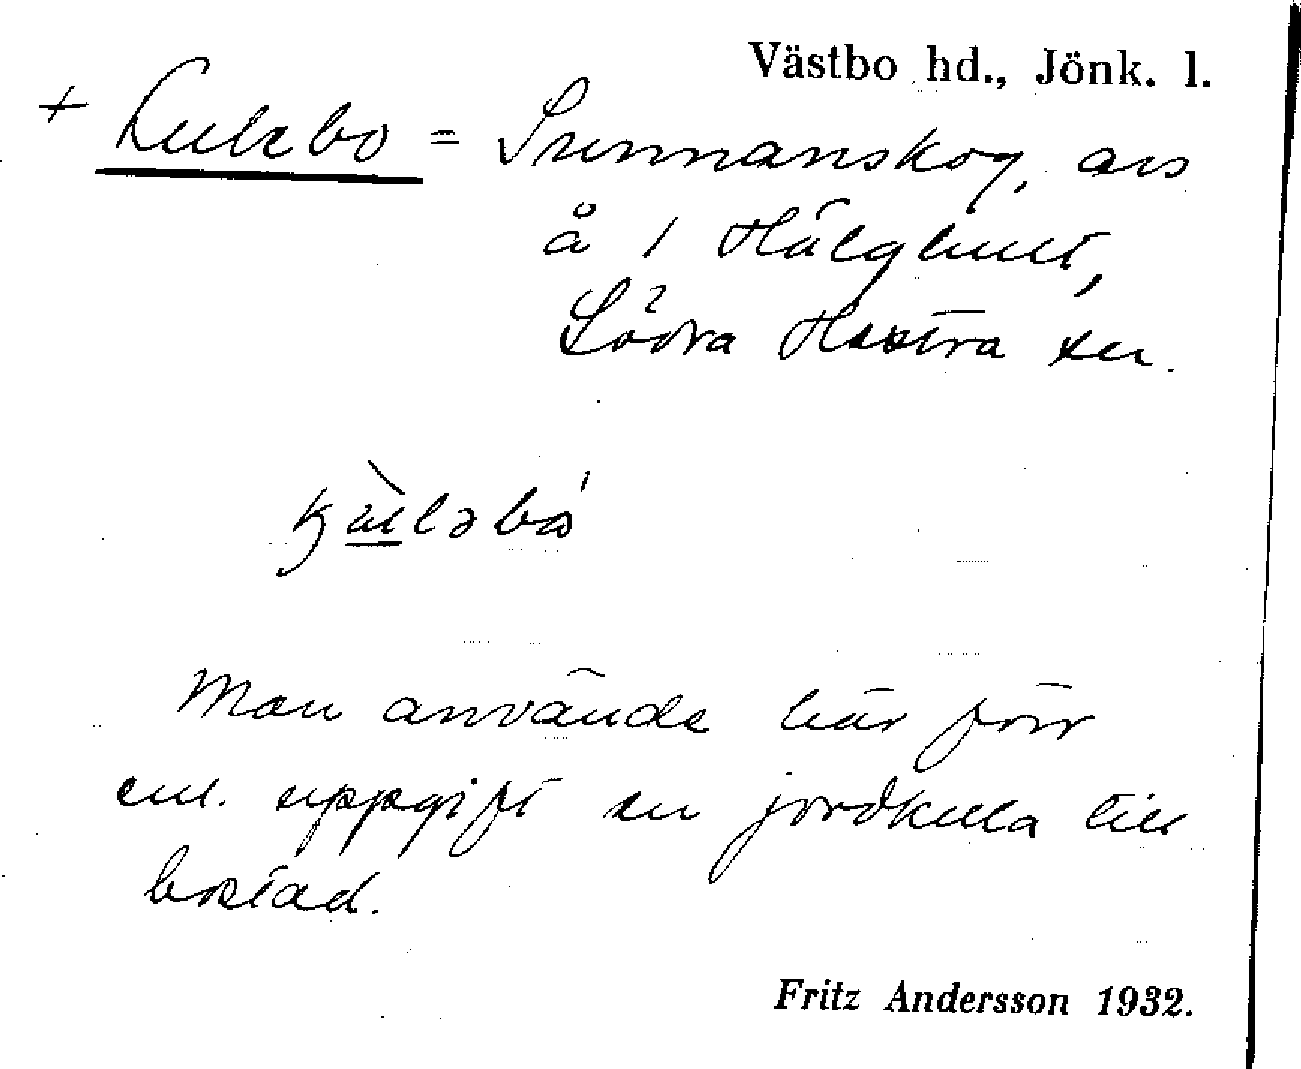 Västbo hd., Jönk. l.
+ Kulebo = Sunnanskog, avs
å 1 Hälghult,
Södra Hestra sn.
Man använde här förr
enl. uppgift en jordkula till
bostad.
Fritz Andersson 1932.